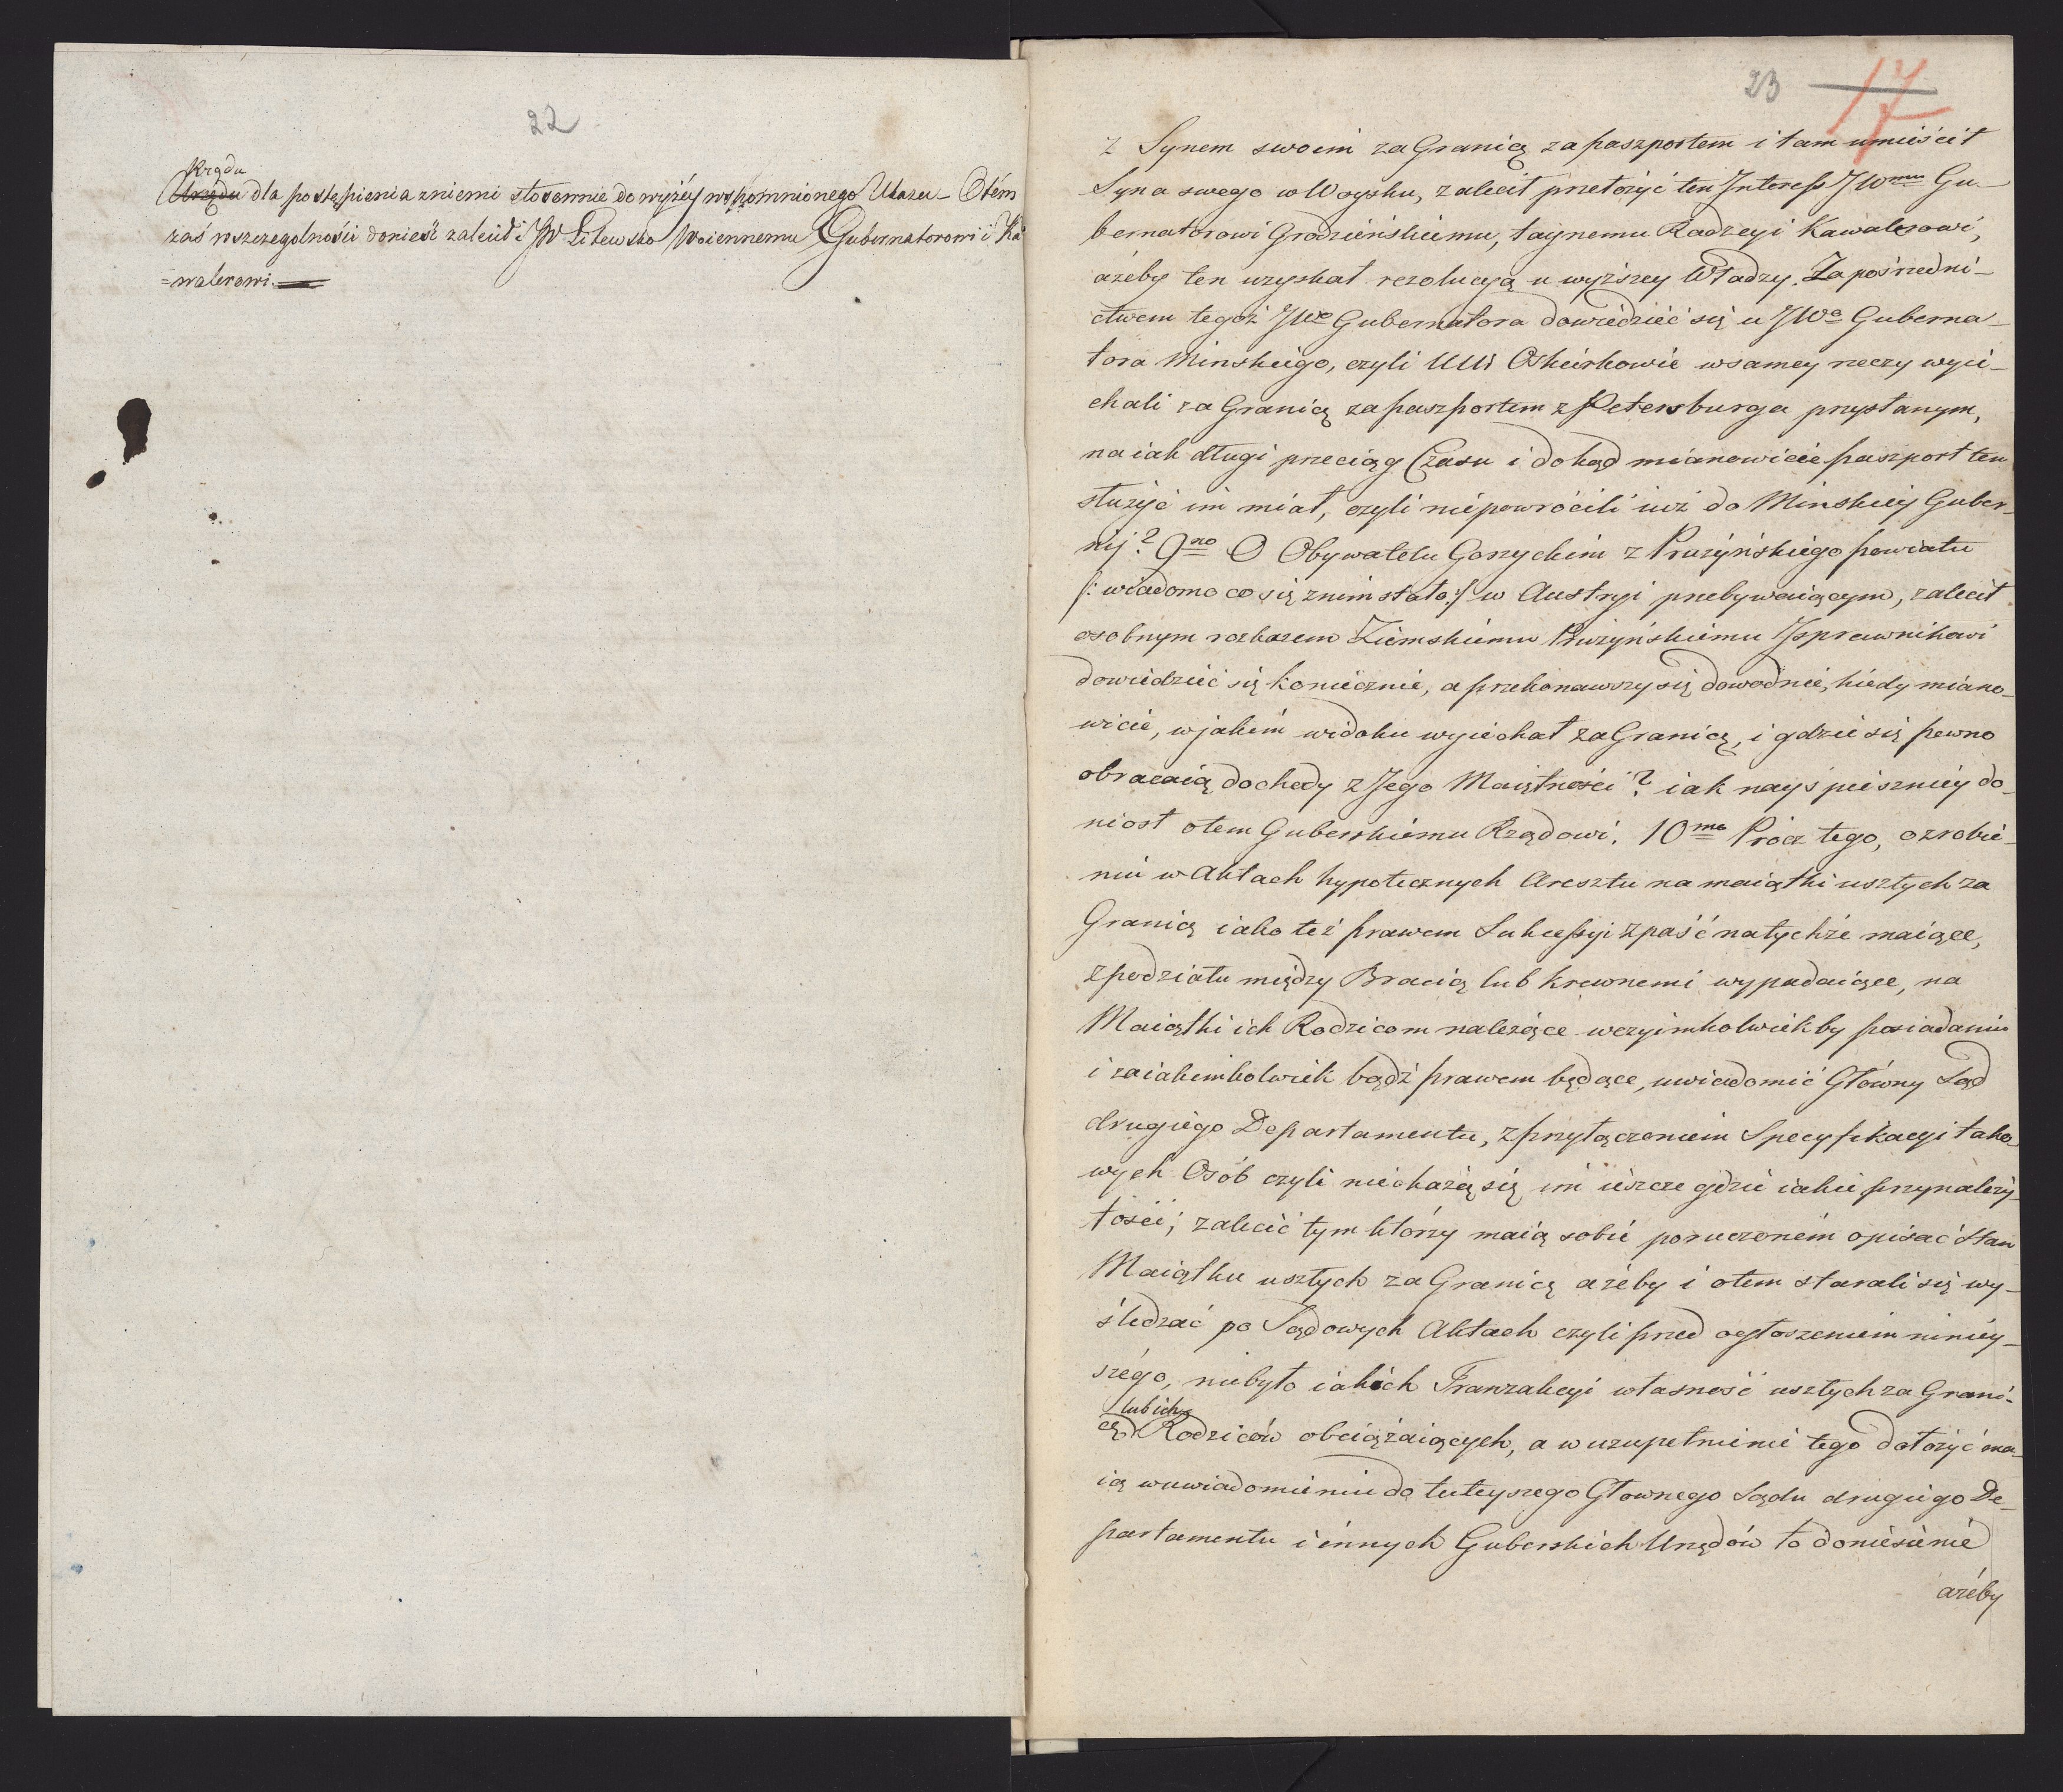 22
Rządu
Urzędu dla postępienia zniemi stosownie do wyżéy wspomnionego Ukazu - Otém
zaś wszczegolności donieść zalecił i JW Litewsko Woiennemu Gubernatorowi i Ka
=walerowi.
23 17
z Synem swoim za Granicę za paszportem i tam umieścił
Syna swego w Woysku, zalecił przełożyć ten Interess JWmu Gu-
bernatorowi Grodzieńskiemu, taynemu Radzcy i Kawalerowi,
ażeby ten uzyskał rezolucyą u wyższey Władzy. Za pośredni-
ctwem tegoż JWo Gubernatora dowiedzieć się u JWo Guberna-
tora Minskiego, czyli UUi Oskirkowie wsamey rzeczy wyie-
chali za Granicę za paszportem z Petersburga przysłanym,
na iak długi przeciąg Czasu i dokąd mianowicie paszport ten
służyć im miał, czyli niepowrócili iuż do Minskiey Guber-
nij? 9no O Obywatelu Gorzyckim z Prużyńskiego powiatu
/: wiadomo co się znim stało :/ w Austryi przebywaiącym, zalecił
osobnym rozkazem Ziemskiemu Prużyńskiemu Isprawnikowi
dowiedzieć się koniecznie, a przekonawszy się dowodnie, kiedy miano-
wicie, w jakim widoku wyiechał za Granicę, i gdzie się pewno
obracaią dochody z Jego Maiętności? iak nayśpieszniey do-
niosł otem Guberskiemu Rządowi. 10mo Prócz tego, ozrobie-
niu w Aktach hypotecznych Aresztu na maiątki uszłych za
Granicę iako też prawem Sukcessyi zpaść natychże maiące,
zpodziału między Bracią lub krewnemi wypadaiące, na
Maiątki ich Rodzicom należące wczyimkolwiekby posiadaniu
i zaiakimkolwiek bądź prawem będące, uwiadomić Główny Sąd
drugiego Departamentu, zprzyłączeniem Specyfikacyi tako-
wych Osób czyli nieokażą się im ieszcze gdzie iakie przynależy-
tości; zalecić tym którzy maią sobie poruczonem opisać Stan
Maiątku uszłych za Granicę ażeby i otem starali się wy-
śledzać po Sądowych Aktach czyli przed ogłoszeniem niniey-
szego, niebyło iakich Tranzakcyi własność uszłych za Grani-
lub ich
cę Rodziców obciążaiących, a w uzupełnienie tego dołożyć ma-
ią wuwiadomieniu do tuteyszego Głownego Sądu drugiego De-
partamentu i innych Guberskich Urzędów to doniesienie
ażeby